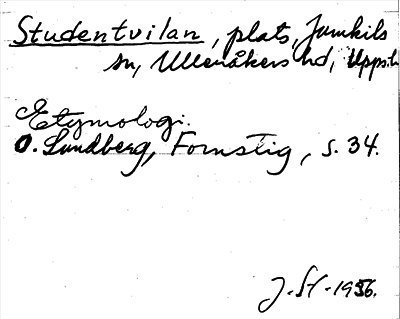 Studentvilan, plats, Jumkils
sn, Ulleråkers hd, Upps.l.
Etymologi.
O. Lundberg, Fornstig, s. 34.
J. St. 1956.